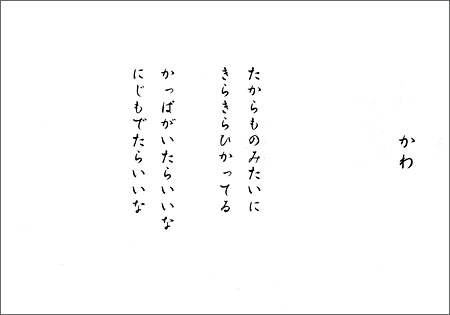 かわ
たからものみたいに
きらきらひかってる
かっぱがいたらいいな
にじもでたらいいな